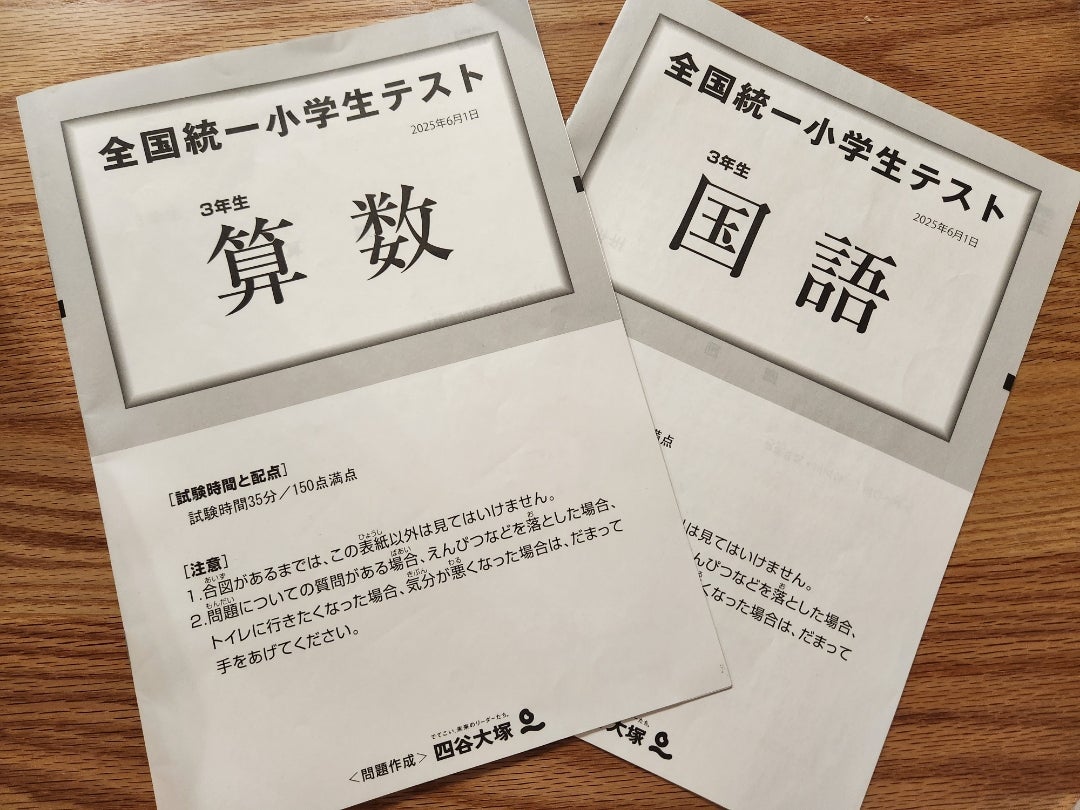 全国統一小学生テスト
2025年6月1日
3年生
算数
[試験時間と配点]
試験時間35分／150点満点
[注意]
あいず
1.合図があるまでは、この表紙以外は見てはいけません。
ひょうし
もんだい
2.問題についての質問がある場合、えんぴつなどを落とした場合、
ばあい
お
トイレに行きたくなった場合、気分が悪くなった場合は、だまって
きぶん
わる
手をあげてください。
<問題作成>
でてこい、未来のリーダーたち。
四谷大塚
全国統一小学生テスト
2025年6月1日
3年生
国語
満点
以外は見てはいけません。
んぴつなどを落とした場合、
お
くなった場合は、だまって
ーたち。
大塚